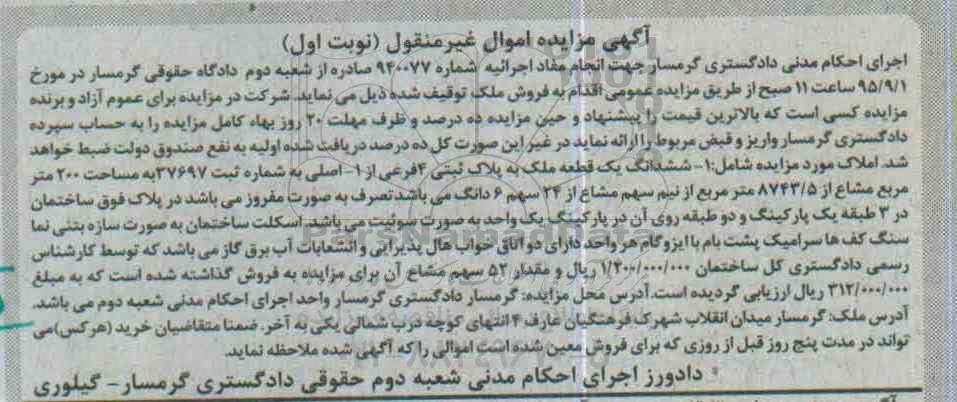 آگهی مزایده اموال غیرمنقول (نوبت اول)
اجرای احکام مدنی دادگستری گرمسار جهت انجام مفاد اجرائیه شماره ۹۴۰۰۷۷ صادره از شعبه دوم دادگاه حقوقی گرمسار در مورخ
۹۵/۹/۱ ساعت ۱۱ صبح از طریق مزایده عمومی اقدام به فروش ملک توقیف شده ذیل می نماید. شرکت در مزایده برای عموم آزاد و برنده
مزایده کسی است که بالاترین قیمت را پیشنهاد و حین مزایده ده درصد و ظرف مهلت ۲۰ روز بهاء کامل مزایده را به حساب سپرده
دادگستری گرمسار واریز و قبض مربوط را ارائه نماید در غیر این صورت کل ده درصد دریافت شده اولیه به نفع صندوق دولت ضبط خواهد
شد. املاک مورد مزایده شامل:۱- ششدانگ یک قطعه ملک به پلاک ثبتی ۴فرعی از ۱- اصلی به شماره ثبت ۳۷۶۹۷به مساحت ۲۰۰ متر
مربع مشاع از ۸۷۴۳/۵ متر مربع از نیم سهم مشاع از ۲۴ سهم ۶ دانگ می باشد تصرف به صورت مفروز می باشد در پلاک فوق ساختمان
در ۳ طبقه یک پارکینگ و دو طبقه روی آن در پارکینگ یک واحد به صورت سوئیت می باشد. اسکلت ساختمان به صورت سازه بتنی نما
سنگ کف ها سرامیک پشت بام با ایزوگام هر واحد دارای دو اتاق خواب هال پذیرایی و انشعابات آب برق گاز می باشد که توسط کارشناس
رسمی دادگستری کل ساختمان ۱/۲۰۰/۰۰۰/۰۰۰ ریال و مقدار ۵۲ سهم مشاع آن برای مزایده به فروش گذاشته شده است که به مبلغ
۳۱۲/۰۰۰/۰۰۰ ریال ارزیابی گردیده است.آدرس محل مزایده: گرمسار دادگستری گرمسار واحد اجرای احکام مدنی شعبه دوم می باشد.
آدرس ملک: گرمسار میدان انقلاب شهرک فرهنگیان عارف ۴ انتهای کوچه درب شمالی یکی به آخر. ضمنا متقاضیان خرید (هرکس)می
تواند در مدت پنج روز قبل از روزی که برای فروش معین شده است اموالی را که آگهی شده ملاحظه نماید.
دادورز اجرای احکام مدنی شعبه دوم حقوقی دادگستری گرمسار- گیلوری
ParsNamadData